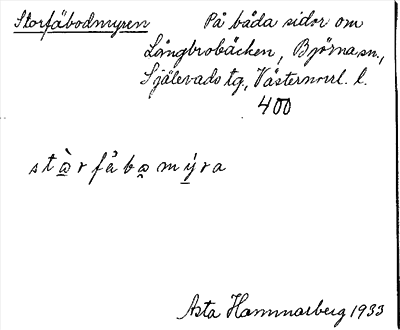 Storfäbodmyren
På båda sidor om
Långbrobäcken, Björna sn.,
Själevads tg., Västernorrl. l.
400
stàrfäbamýra
Asta Hammarberg 1933